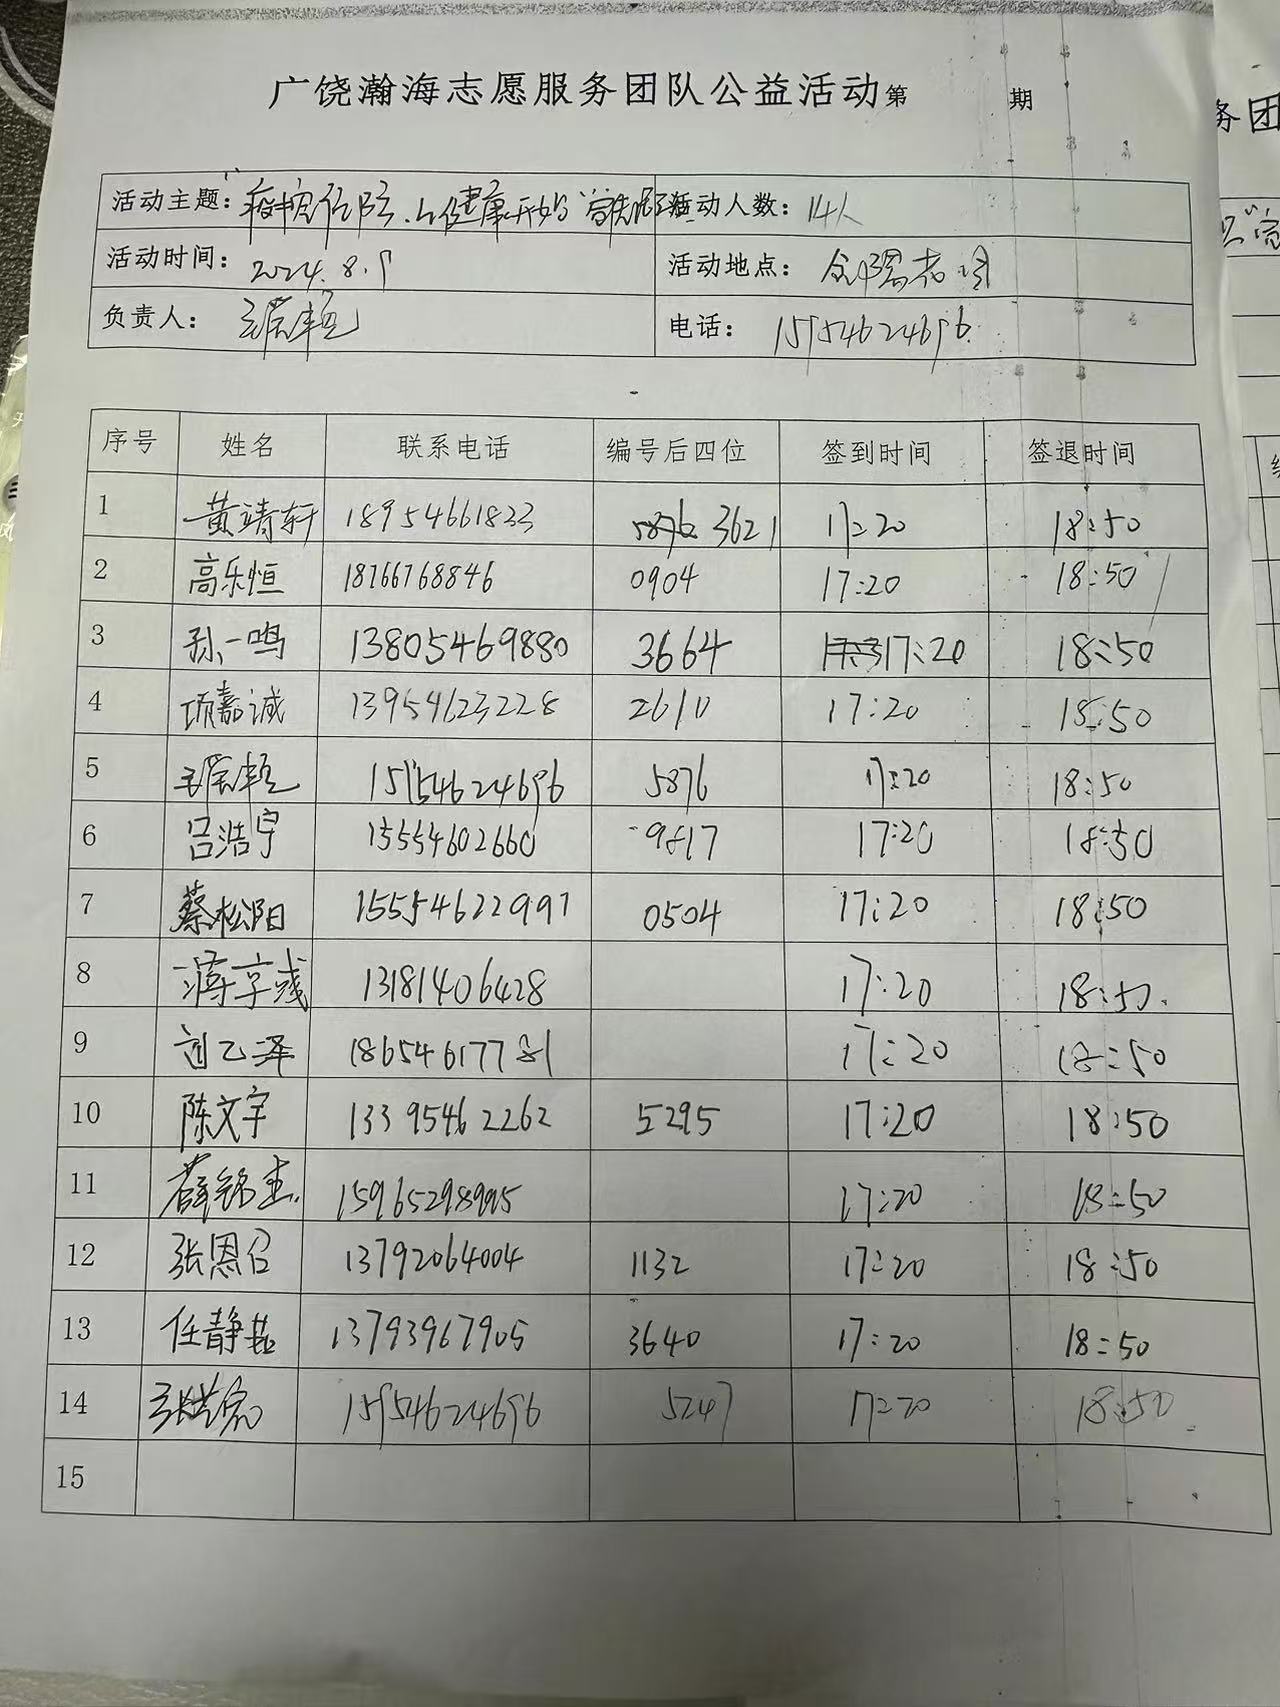 广饶瀚海志愿服务团队公益活动第 期
活动主题: 活动人数: 14人
活动时间: 2024.8.9 活动地点:
负责人: 电话: 15954624696
序号 姓名 联系电话 编号后四位 签到时间 签退时间
1 黄靖轩 18954661823 3621 17:20 18:50
2 高乐恒 18766768846 0904 17:20 18:50
3 孙一鸣 13805469880 3664 17:20 18:50
4 项嘉诚 13954623228 2610 17:20 18:50
5 15954624696 5876 17:20 18:50
6 吕浩宇 15554602660 9817 17:20 18:50
7 蔡松阳 15554622997 0504 17:20 18:50
8 13181406428 17:20 18:50
9 刘乙泽 17:20 18:50
10 陈文宇 13395462262 5295 17:20 18:50
11 薛铭杰 17:20 18:50
12 张恩召 13792064004 1132 17:20 18:50
13 任静茹 13793967905 3640 17:20 18:50
14 15954624696 5247 17:20 18:50
15
务团